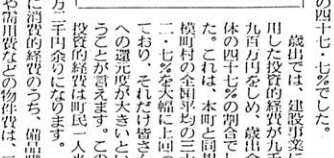 の四十七・七％でした。
歳出では、建設事業に
用した投資的経費が九千
九百万円をしめ、歳出全
体の四十・七％の割合で
た。これは、本町と同規
模町村の全国平均の三十
二・七％を大幅に上回っ
ており、それだけ皆さん
への還元度が大きいとい
うことが言えます。この
投資的経費は町民一人当
万二千円余りになります。
に消費的経費のうち、備品購
や需用費などの物件費は、二